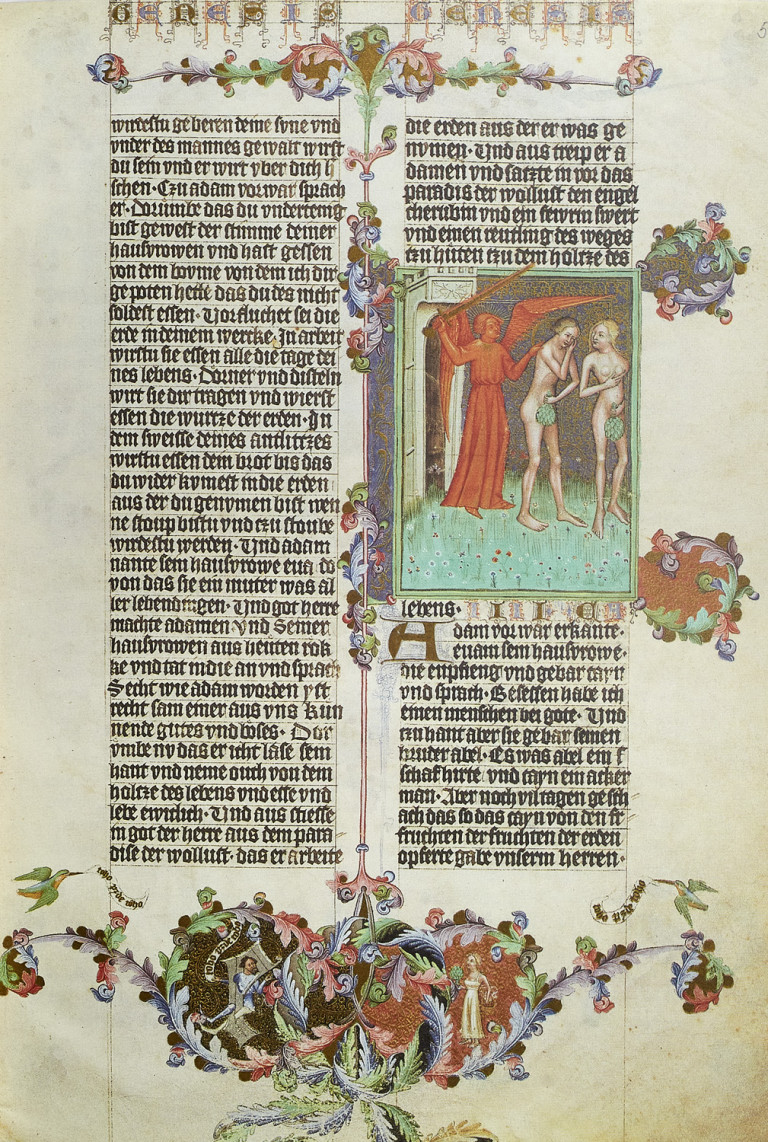 GENESIS GENESIS
5
wirdestu geberen deine sune vnd
vnder des mannes gewalt wirst
du sein vnd er wirt vber dich h
schen · Czu adam vorwar sprach
er · Dorumbe das du vndertenig
bist gewest der stimme deiner
hausvrowen vnd hast gessen
von dem bovme von dem ich dir
gepoten hette das du des nicht
soldest essen · Vorfluchet sei die
erde in deinem wercke · In arbeit
wirstu sie essen alle die tage dei
nes lebens · Dorner vnd disteln
wirt sie dir tragen vnd wierst
essen die wurtze der erden · In
dem sweisse deines antlitzes
wirstu essen dein brot bis das
du wider kvmest in die erden
aus der du genvmen bist wen
ne stoup bistu vnd czu stoube
wirdestu werden · Vnd adam
nante sein hausvrowe eua do
von das sie ein muter was al
ler lebendingen · Vnd got herre
machte adamen vnd Seiner
hausvrowen aus heuten rok
ke vnd tat in die an vnd sprach
Secht wie adam worden yst
recht sam einer aus vns kun
nende gutes vnd boses · Dor
vmbe nv das er icht lase sein
hant vnd neme ouch von dem
holtze des lebens vnd esse vnd
lebe ewiclich · Vnd aus stiesse
in got der herre aus dem para
dise der wollust · das er arbeite
die erden aus der er was ge
nvmen · Vnd aus treip er a
damen vnd satzte in vor das
paradis der wollust den engel
cherubin vnd ein fewrin swert
vnd einen reutling des weges
czu hüten czu dem holtze des
lebens · IIII
Adam vorwar erkante ·
euam sein hausvrowe ·
die enpfieng vnd gebar cayn
vnd sprach · Besessen habe ich
einen menschen bei gote · Vnd
czu hant aber sie gebar seinen
bruder abel · Es was abel ein s
schafhirte vnd cayn ein acker
man · Aber noch vil tagen gesch
ach das so das cayn von den fr
fruchten der fruchten der erden
opferte gabe vnserm herren ·
toho pzde toho
toho pzde toho
toho pzde toho